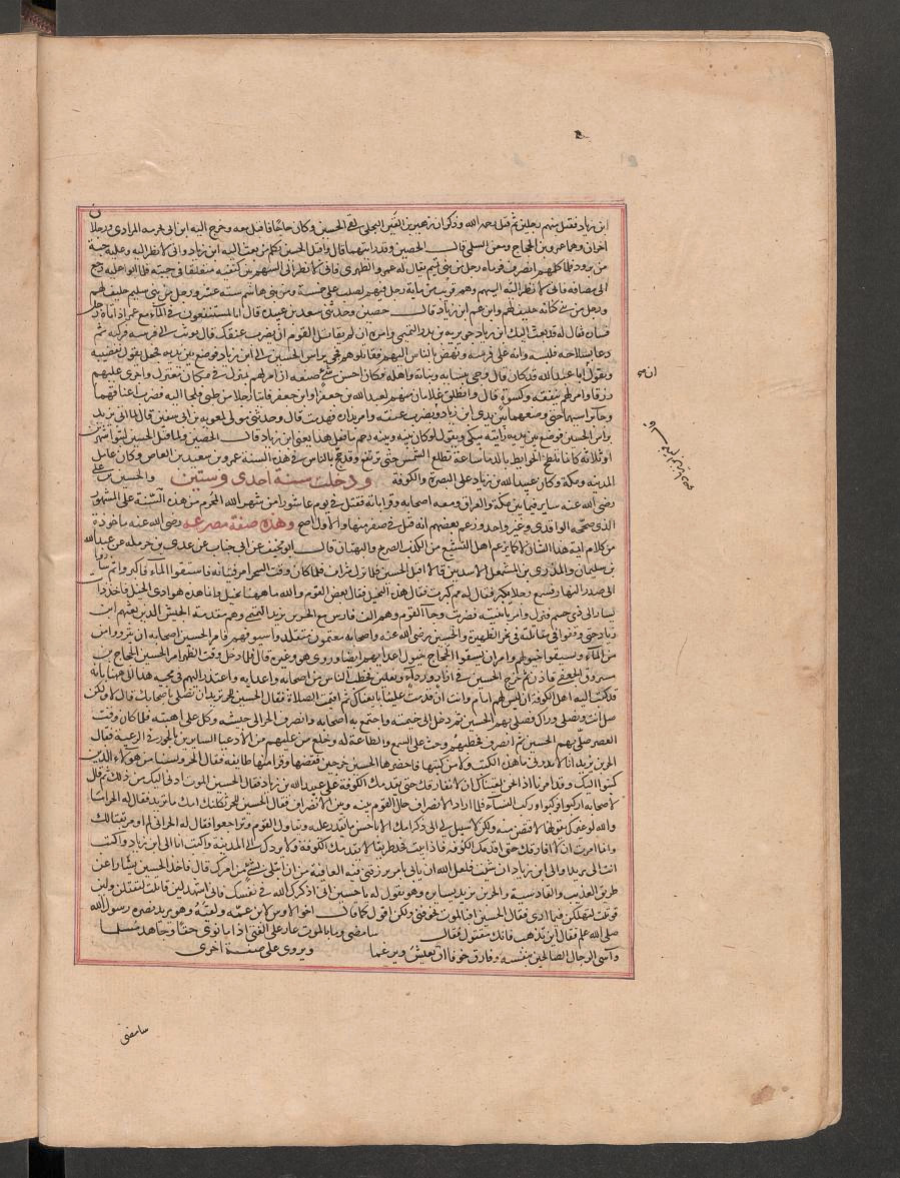 ابن زياد فقتل منهم رجلين ثم قتل رحمه الله وذكر ان زهير بن القين البجلي لقي الحسين وكان حاجا فاقبل معه وخرج اليه ابن ابي بحرية المرادي ورجلان
اخران وهما عمرو بن الحجاج ومعن السلمي قال الحصين وقد رايتهما قال واقبل الحسين يكلم من بعث اليه ابن زياد واني لانظر اليه وعليه جبة
من برود فلما كلمهم انصرف فرماه رجل من بني تميم يقال له عمرو الطهوي فاني لانظر الى السهم بين كتفيه متعلقا في جبته فلما ابوا عليه رجع
الى مصافه فاني لانظر اليهم وهم قريب من ماية رجل فيهم لصلب علي خمسة ومن بني هاشم ستة عشر ورجل من بني سليم حليف لهم
ورجل من بني كنانة حليف لهم وابن عم ابن زياد قال حصين وحدثني سعد بن عبيدة قال انا لمستنقعون في الماء مع عمر اذ اتاه رجل
فساره فقال له قد بعث اليك ابن زياد جويرية بن بدر التميمي وامره ان لم يقاتل القوم ان يضرب عنقك قال فوثب الى فرسه فركبه ثم
دعا بسلاحه فلبسه وانه على فرسه ونهض بالناس اليهم فقاتلوهم فجي براس الحسين الى ابن زياد فوضع بين يديه فجعل يقول بقضيبه
ويقول ابا عبد الله قد كان قال وجي بنسايه وبناته واهله وكان احسن شي صنعه ان امر لهم بمنزل في مكان معتزل واجرى عليهم
رزقا وامر لهم بنفقة وكسوة قال وانطلق غلامان منهم لعبد الله بن جعفر او ابن جعفر فاتيا رجلا من طي فلجا اليه فضرب اعناقهما
وجا براسيهما حتى وضعهما بين يدي ابن زياد فهم بضرب عنقه وامر بداره فهدمت قال وحدثني مولى لمعوية بن ابي سفين قال لما اتي يزيد
براس الحسين فوضع بين يديه رايته يبكي ويقول لو كان بينه وبينه رحم ما فعل هذا يعني ابن زياد قال الحصين ولما قتل الحسين لبثوا شهرين
او ثلاثة كانما تلطخ الحوايط بالدماء ساعة تطلع الشمس حتى ترتفع وقد حج بالناس في هذه السنة عمرو بن سعيد بن العاص وكان عامل
المدينة ومكة وكان عبيد الله بن زياد على البصرة والكوفة ودخلت سنة احدى وستين والحسين بن علي
رضي الله عنه ساير فيما بين مكة والعراق ومعه اصحابه وقراباته فقتل في يوم عاشورا من شهر الله المحرم من هذه السنة على المشهور
الذي صححه الواقدي وغير واحد وزعم بعضهم انه قتل في صفر منها والاول اصح وهذه صفة مصرعه رضي الله عنه ماخوذة
من كلام ايمة هذا الشان لا كما يزعم اهل التشيع من الكذب الصريح والبهتان قال ابو مخنف عن ابي جناب عن عدي بن حرملة عن عبد الله
بن سليمان والمذري بن المشمعل الاسديين قالا اقبل الحسين فلما نزل شراف فلما كان وقت السحر امر فتيانه فاستقوا الماء فاكثروا ثم ساروا
الى صدر النهار فسمع رجلا يكبر فقال له مم كبرت فقال هذه النخيل فقال بعض القوم والله ما ههنا نخيل وانما هذه هوادي الخيل فاخذ ذات
يسار الى ذي حسم فنزل وامر بابنيته فضربت وجا القوم وهم الف فارس مع الحر بن يزيد التميمي وهم مقدمة الجيش الذين بعثهم ابن
زياد حتى وقفوا في مقابلته في نحر الظهيرة والحسين رضي الله عنه واصحابه معتمون متقلدو اسيوفهم فامر الحسين اصحابه ان يترووا من
من الماء ويسقوا خيولهم وامر ان يسقوا خيول اعدايهم ايضا وروى هو وغيره قال فلما دخل وقت الظهر امر الحسين الحجاج بن
مسروق الجعفي فاذن ثم خرج الحسين في ازار ورداء ونعلين فخطب الناس من اصحابه واعدايه واعتذر اليهم في مجيه هذا الى ههنا بانه
قد كتب اليه اهل الكوفة ان ليس لهم امام وانت ان قدمت علينا بايعناك ثم اقيمت الصلاة فقال الحسين للحر تريد ان تصلي باصحابك قال لا ولكن
صل انت ونصلي وراك فصلى بهم الحسين ثم دخل الى خيمته واجتمع به اصحابه وانصرف الحر الى جيشه وكل على اهبته فلما كان وقت
العصر صلى بهم الحسين ثم انصرف فخطبهم وحث على السمع والطاعة له وخلع من عليهم من الادعيا السايرين بالجور في الرعية فقال
الحر بن يزيد انا لا ندري ما هذه الكتب ولا من كتبها فاحضر لها الحسين خرجين فنفضها وقرا منها طايفة فقال الحر لسنا من هولاء الذين
كتبوا اليك وقد امرنا اذا نحن لقيناك ان لا نفارقك حتى نقدمك الكوفة على عبيد الله بن زياد فقال الحسين الموت ادنى اليك من ذلك ثم قال
لاصحابه اركبوا فركبوا وركب النساء فلما اراد الانصراف حال القوم بينه وبين الانصراف فقال الحسين للحر ثكلتك امك ما تريد فقال له الحر اما
والله لو غيرك يقولها لاقتص منه ولكن لا سبيل الى ذكر امك الا باحسن ما نقدر عليه وتقاول القوم وتراجعوا فقال له الحر اني لم اومر بقتالك
وانما امرت ان لا افارقك حتى اقدمك الكوفة فاذا ابيت فخذ طريقا لا تقدمك الكوفة ولا تردك الى المدينة واكتب انا الى ابن زياد واكتب
انت الى يزيد او الى ابن زياد ان شيت فلعل الله ان ياتي بامر يرزقني فيه العافية من ان ابتلى بشي من امرك قال فاخذ الحسين يسارا عن
طريق العذيب والقادسية والحر بن يزيد يسايره وهو يقول له يا حسين اني اذكرك الله في نفسك فاني اشهد لين قاتلت لتقتلن ولين
قوتلت لتهلكن فيما ارى فقال الحسين افبالموت تخوفني ولكن اقول كما قال اخو الاوس لابن عمه ولقيه وهو يريد نصرة رسول الله
صلى الله علم فقال اين تذهب فانك مقتول فقال سامضي وما بالموت عار على الفتى اذا ما نوى حقا وجاهد مسلما
وآسى الرجال الصالحين بنفسه وفارق خوفا ان يعيش ويرغما ويروى على صفة اخرى
سامضي